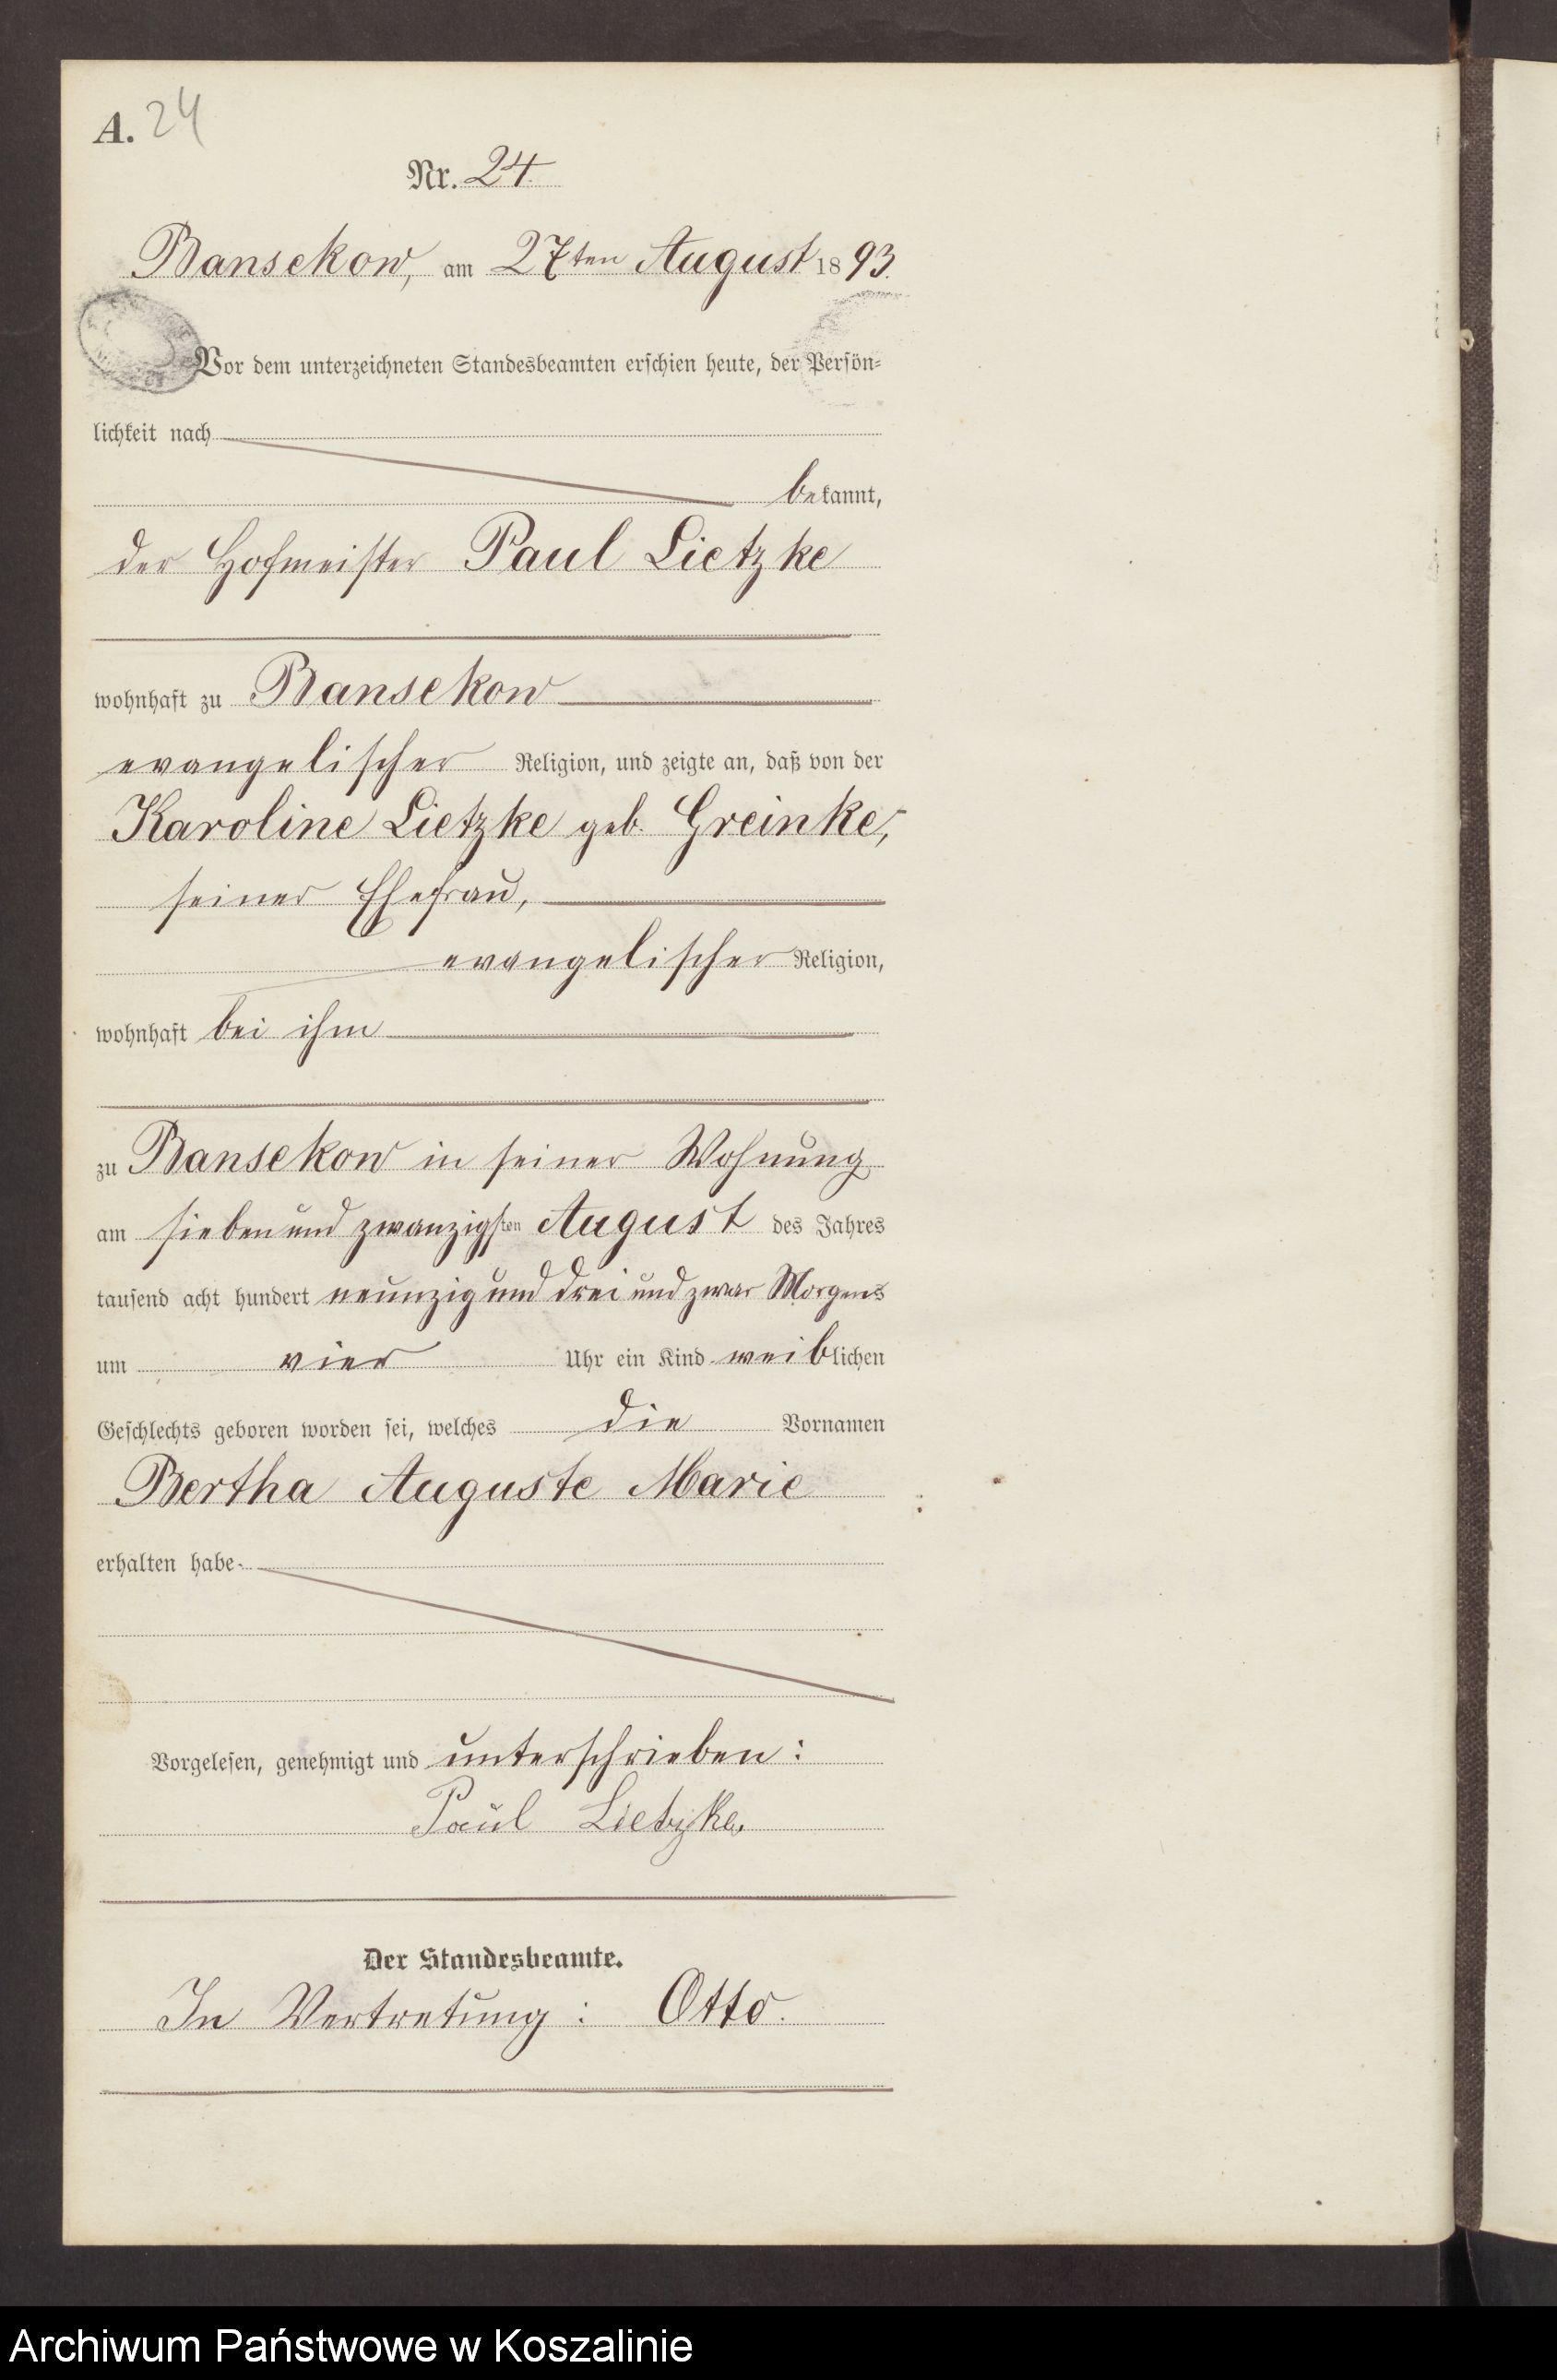 A. 24
Nr. 24.
Bansekow, am 27ten August 1893.
Vor dem unterzeichneten Standesbeamten erschien heute, der Persön-
lichkeit nach
bekannt,
der Hofmeister Paul Lietzke
wohnhaft zu Bansekow
evangelischer Religion, und zeigte an, daß von der
Karoline Lietzke geb. Greinke,
seiner Ehefrau,
evangelischer Religion,
wohnhaft bei ihm
zu Bansekow in seiner Wohnung
am sieben und zwanzigsten August des Jahres
tausend acht hundert neunzig und drei und zwar Morgens
um vier Uhr ein Kind weiblichen
Geschlechts geboren worden sei, welches die Vornamen
Bertha Auguste Marie
erhalten habe.
Vorgelesen, genehmigt und unterschrieben:
Paul Lietzke.
Der Standesbeamte.
In Vertretung: Otto.
Archiwum Państwowe w Koszalinie